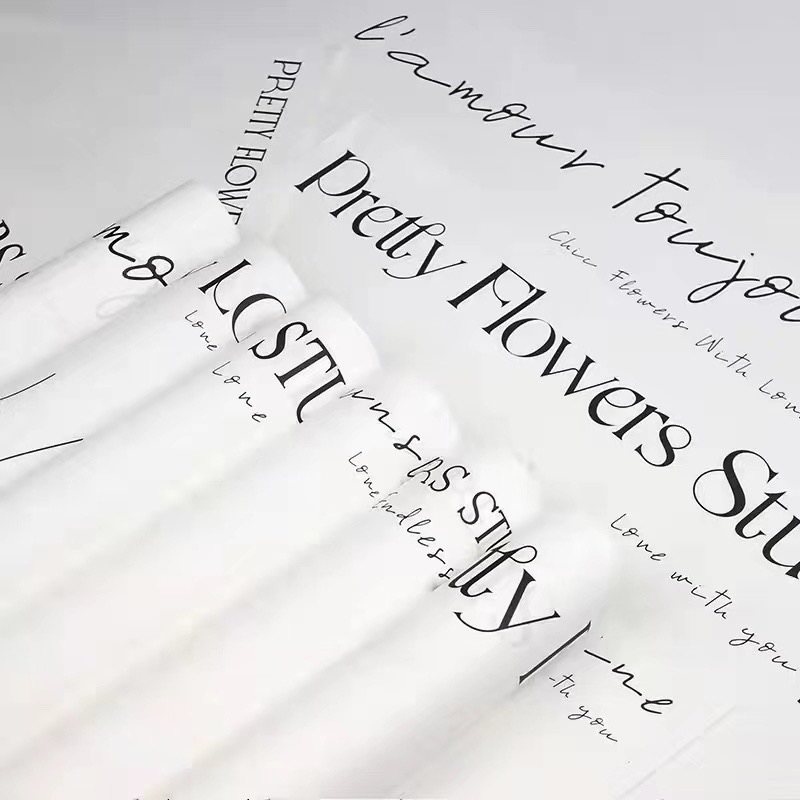 l'amour toujo
PRETTY FLOWE
Pretty Flowers Stu
Chic Flowers With Lov
RS S
mo
LOSTU
Love Love
ns
RS STU
Love
ndless
tty
Love with you
ne
th you